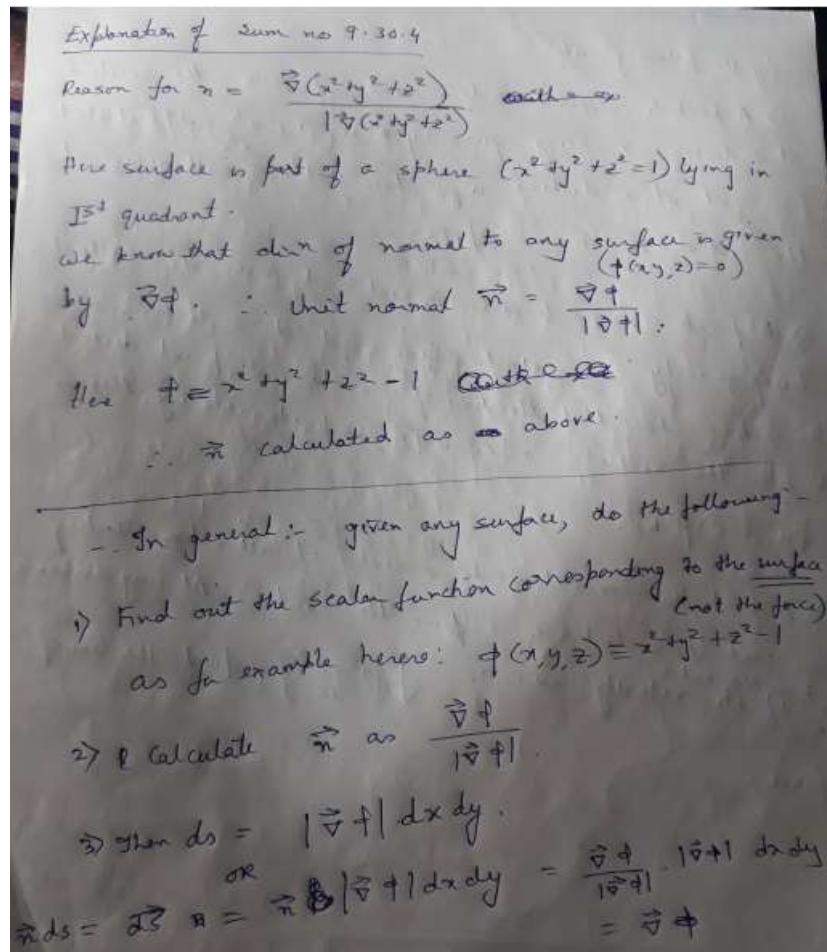 Explanation of Sum no 9.30.4
Reason for n = ∇⃗(x²+y²+z²) / |∇⃗(x²+y²+z²)|
Here surface is part of a sphere (x²+y²+z²=1) lying in
Ist quadrant.
We know that dirn of normal to any surface is given
(φ(x,y,z)=0)
by ∇⃗φ. ∴ Unit normal n⃗ = ∇⃗φ / |∇⃗φ|.
Here φ ≡ x²+y²+z²-1
∴ n⃗ calculated as above.
∴ In general:- given any surface, do the following-
1) Find out the scalar function corresponding to the surface
(not the force)
as for example herers: φ(x,y,z) ≡ x²+y²+z²-1
2) Calculate n⃗ as ∇⃗φ / |∇⃗φ|.
3) Then ds = |∇⃗φ| dx dy.
OR
n⃗ ds = dS⃗ = n⃗ |∇⃗φ| dx dy = ∇⃗φ / |∇⃗φ| . |∇⃗φ| dx dy
= ∇⃗φ